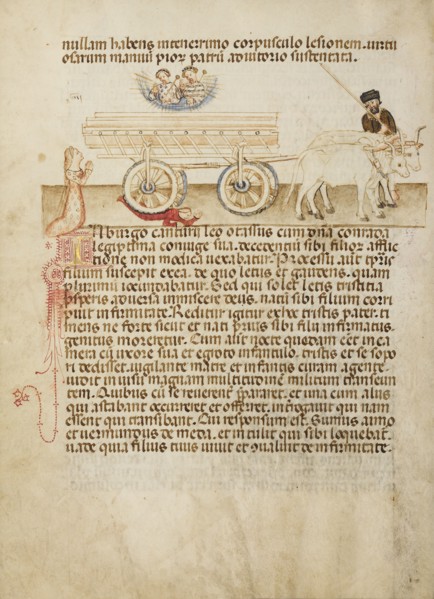 nullam habens intenerimo corpusculo lesionem. uirtu
osarum manuū pior patrū adiutorio sustentata.
burgo cantun leo otassus cum dña conrada
legiptima coniuge sua. decedentiū sibi filior afflic
tione non modica uexabatur. Processu aut tꝑris
filium suscepit ex ea. de quo letus et gaudens. quam
plurimū iocundabatur. Sed qui solet letis tristitia
ꝓsperis aduersa inmiscere deus. natū sibi filium corri
puit infirmitate. Redditur igitur ex leto tristis pater. ti
mens ne forte sicut et nati prius sibi filii infirmatus.
genitus moreretur. Cum aūt nocte quadam eēt in ca
mera cū uxore sua et egroto infantulo. tristis et se sopo
ri dedisset. uigilante matre et infantis curam agente.
uidit in uisu magnam multitudinē militum transeun
tem. Quibus cū se reuerenter pararet. et una cum aliis
qui astabant occurreret et offerret. introgauit qui nam
essent qui transibant. Cui responsum est. Sumus aimo
et uermundus de meda. et intulit qui sibi loquebat.
uade quia filius tuus uiuit et ꝯualuit de infirmitate.